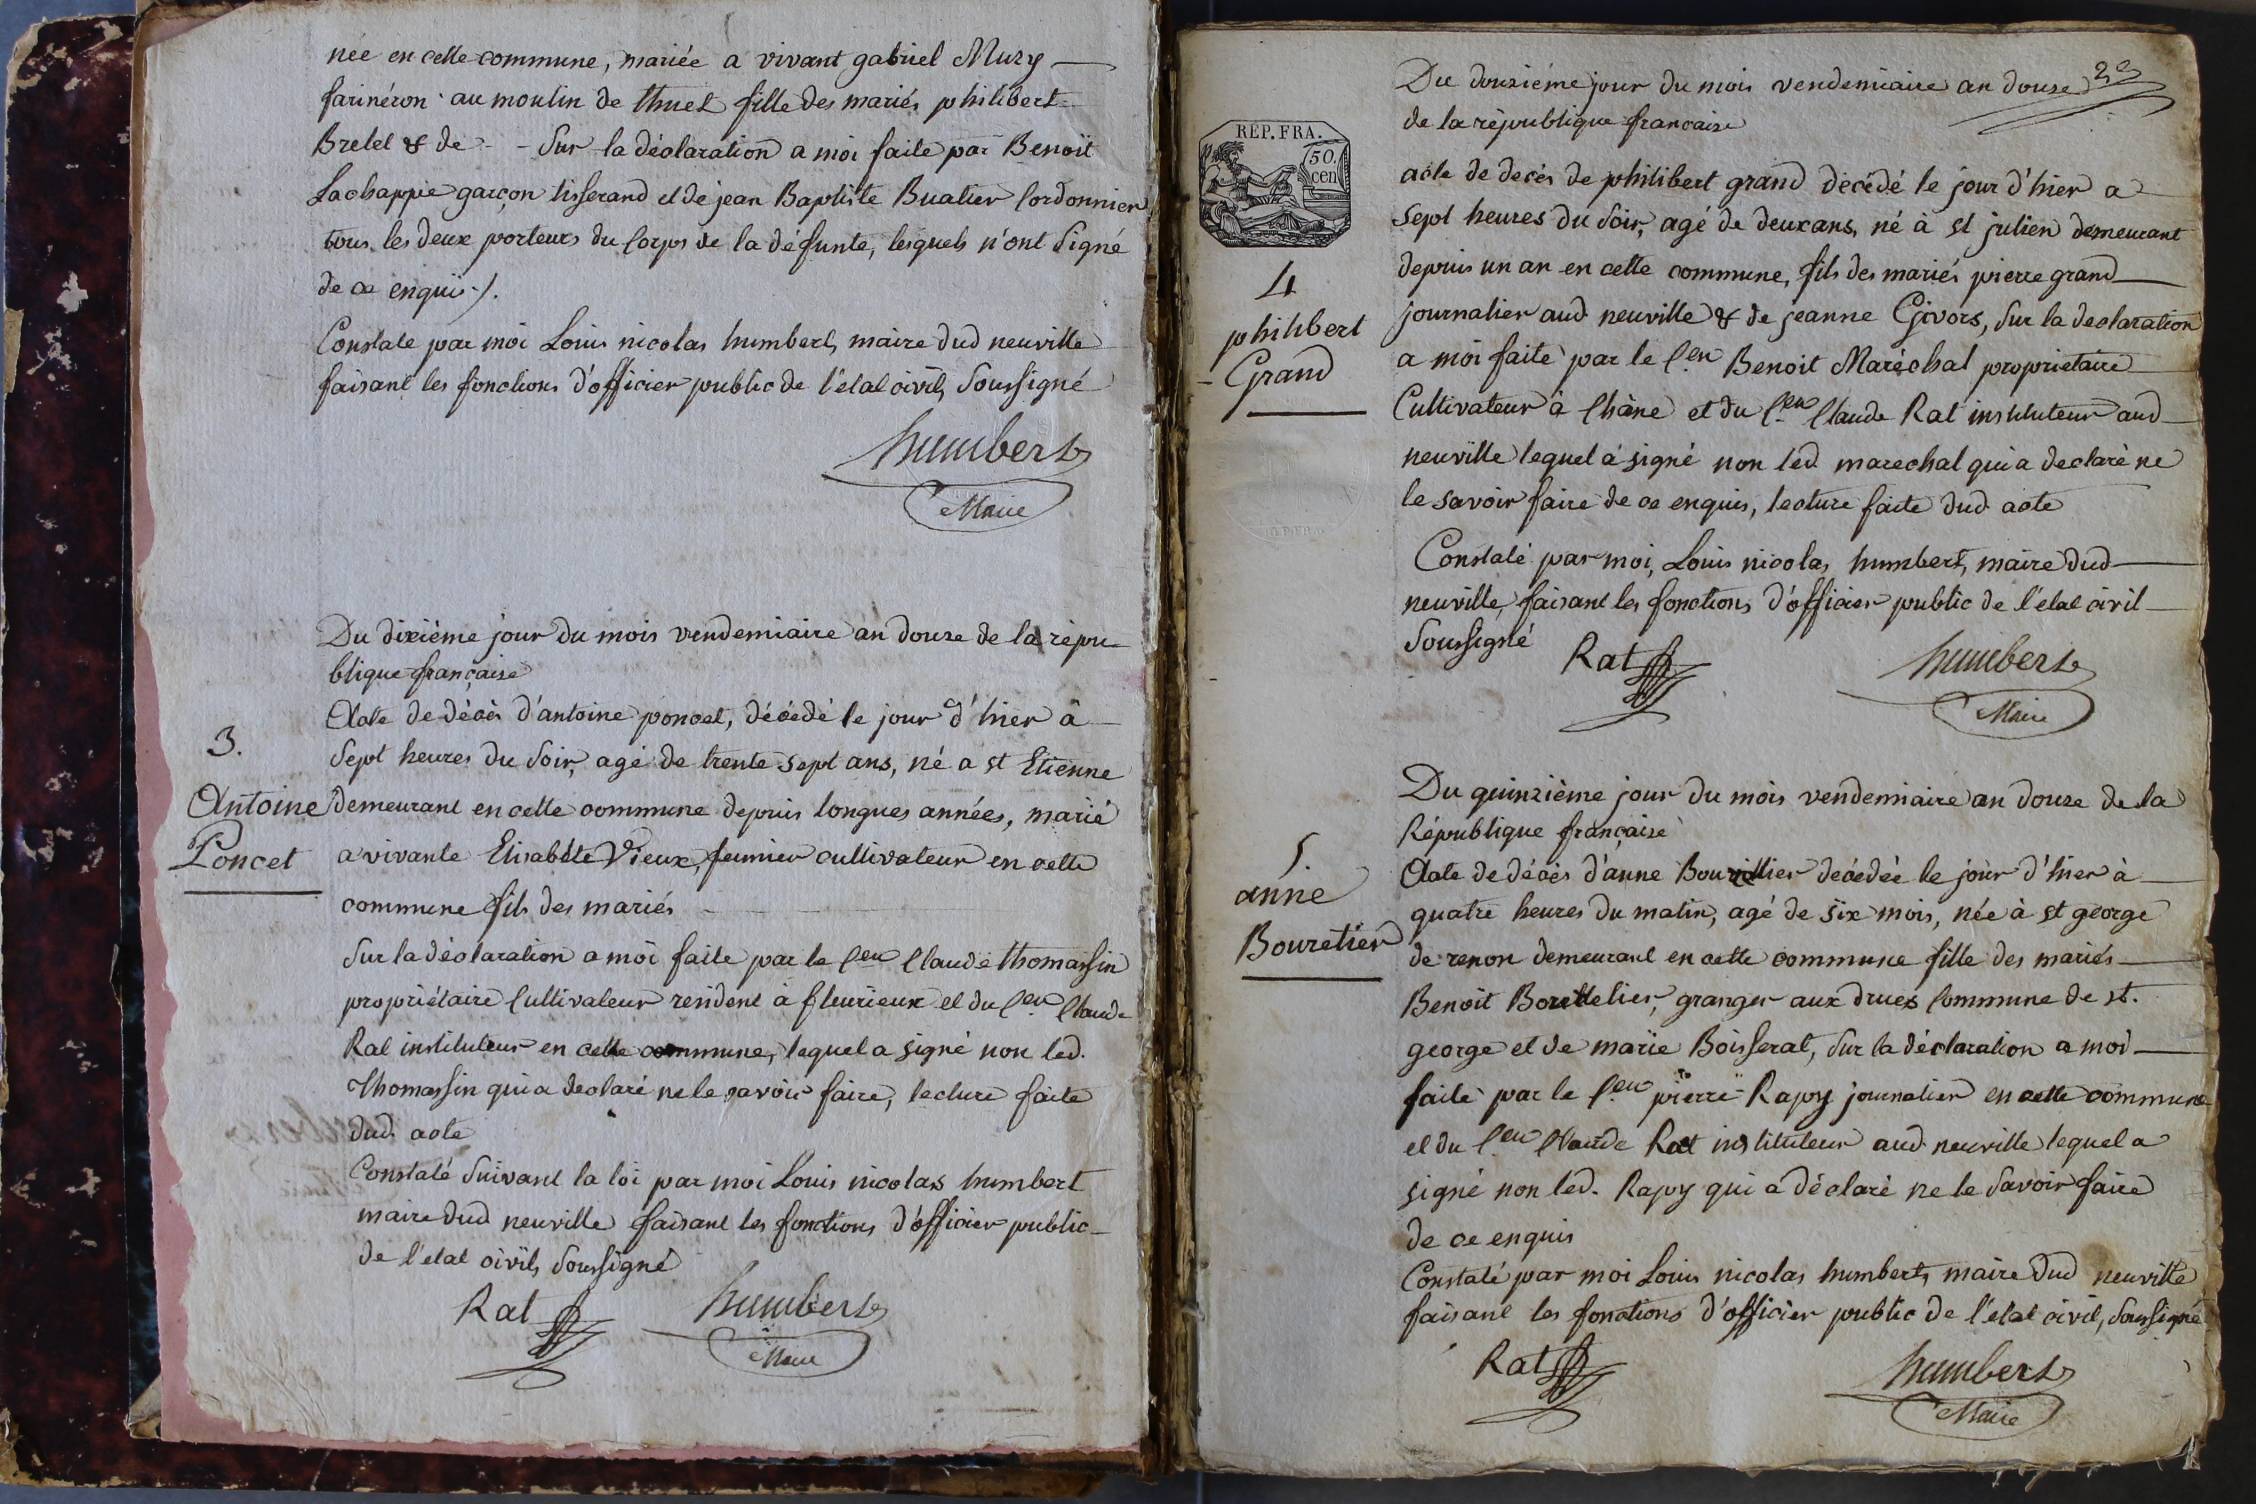 née en cette commune, mariée a vivant gabriel Mury
farinéron au moulin de thuet fille des mariés philibert
Bretel & de - - Sur la déclaration a moi faite par Benoït
Lachappie garçon tisserand et de jean Baptiste Buatier Cordonnier
tous les deux porteurs du Corps de la défunte, lesquels n'ont Signé
de ce enquis ./.
Constate par moi Louis nicolas humbert, maire dud neuville
faisant les fonctions d'officier public de l'etat civil, Soussigné
humbert
Maire
Du dixième jour du mois vendemiaire an douze de la répu-
blique française
3.
Antoine
Poncet
Acte de décès d'antoine poncet, décédé le jour d'hier à
Sept heures du Soir, agé de trente Sept ans, né a st Etienne
demeurant en cette commune depuis longues années, marié
a vivante Elisabète Vieux, fermier cultivateur en cette
commune fils des mariés
Sur la déclaration a moi faite par le Cen Claude thomassin
propriétaire Cultivateur resident à fleurieux et du Cen Claude
Rat instituteur en cette commune, lequel a signé non led.
Thomassin qui a declaré ne le savoir faire, lecture faite
dud. acte
Constaté Suivant la loi par moi Louis nicolas humbert
maire dud neuville faisant les fonctions d'officier public
de l'etat civil, Soussigné
Rat humbert
Maire
Du douzième jour du mois vendemiaire an douze
de la république française
REP. FRA.
50.
cen
4
philibert
Grand
acte de decès de philibert grand décédé le jour d'hier a
Sept heures du Soir, agé de deux ans, né à st julien demeurant
depuis un an en cette commune, fils des mariés pierre grand
journalier aud neuville & de jeanne Givors, Sur la declaration
a moi faite par le Cen Benoit Maréchal proprietaire
Cultivateur à Chàne et du Cen Claude Rat instituteur aud
neuville lequel à signé non led marechal qui a declaré ne
le savoir faire de ce enquis, lecture faite dud acte
Constaté par moi, Louis nicolas humbert, maire dud
neuville, faisant les fonctions d'officier public de l'etat civil
Soussigné
Rat humbert
Maire
Du quinzième jour du mois vendemiaire an douze de la
République française
5.
anne
Bouretier
Acte de décès d'anne décédée le jour d'hier à
quatre heures du matin, agé de six mois, née à st george
de renon demeurant en cette commune fille des mariés
Benoit granger aux drues Commune de st.
george et de marie Boisserat, Sur la déclaration a moi
faite par le Cen pierre Rapy journalier en cette commune
et du Cen Claude Rat instituteur aud neuville lequel a
signé non led. Rapy qui a déclaré ne le Savoir faire
de ce enquis
Constaté par moi Louis nicolas humbert, maire dud neuville
faisant les fonctions d'officier public de l'etat civil, Soussigné
Rat humbert
Maire